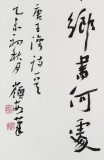 鄉書何處
唐王灣詩一首
乙未初秋月